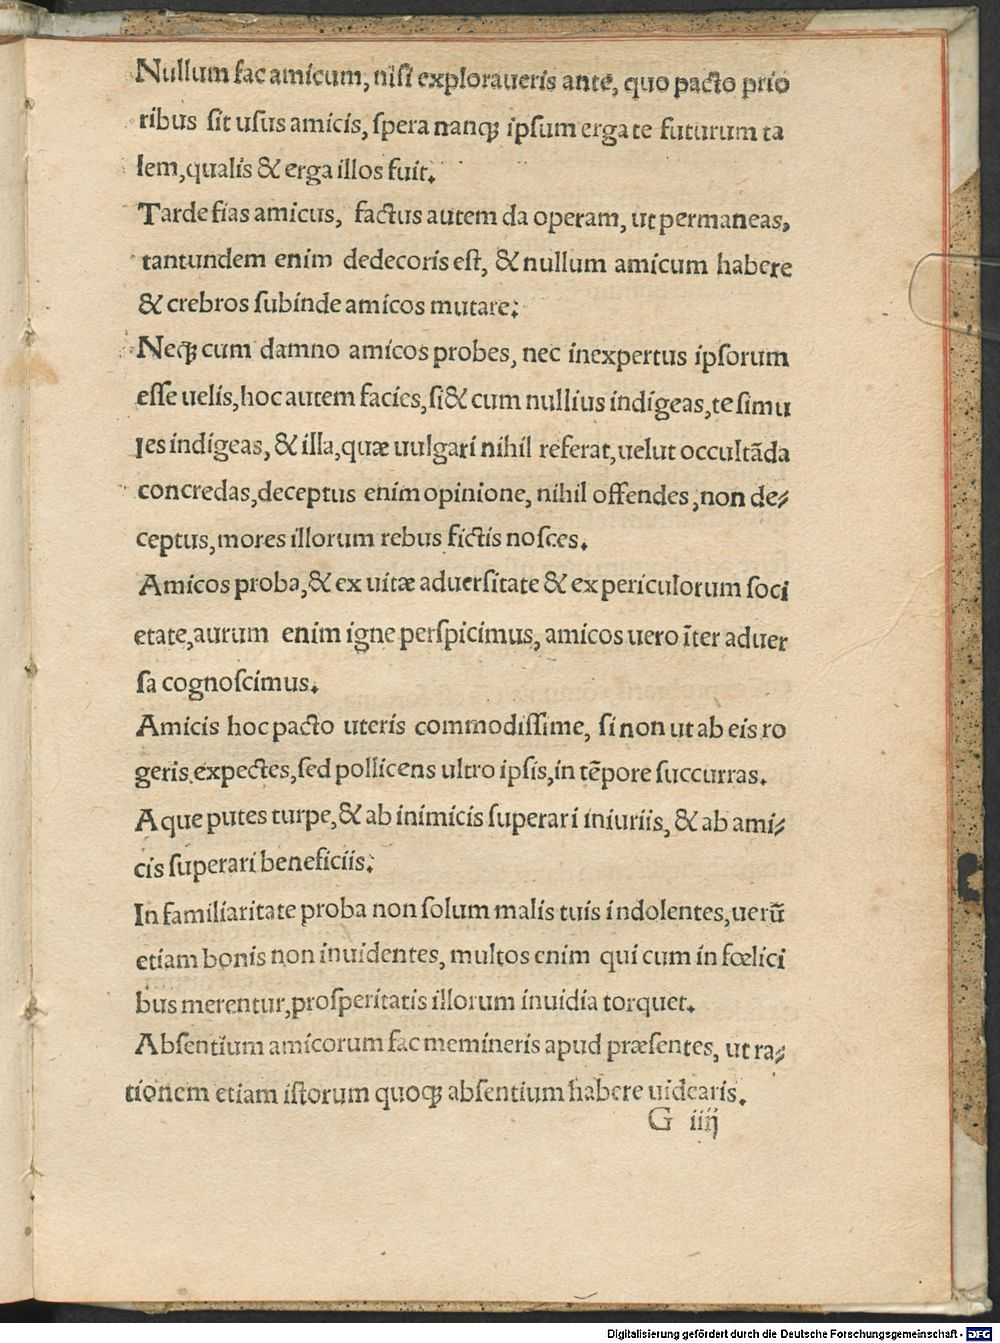 Nullum fac amicum, nisi exploraueris ante, quo pacto prio
ribus sit usus amicis, spera nanqꝫ ipsum erga te futurum ta
lem, qualis & erga illos fuit.
Tarde fias amicus, factus autem da operam, ut permaneas,
tantundem enim dedecoris est, & nullum amicum habere
& crebros subinde amicos mutare:
Neqꝫ cum damno amicos probes, nec inexpertus ipsorum
esse uelis, hoc autem facies, si & cum nullius indigeas, te simu
les indigeas, & illa, quæ uulgari nihil referat, uelut occultãda
concredas, deceptus enim opinione, nihil offendes, non de⸗
ceptus, mores illorum rebus fictis nosces.
Amicos proba, & ex uitæ aduersitate & ex periculorum soci
etate, aurum enim igne perspicimus, amicos uero ĩter aduer
sa cognoscimus.
Amicis hoc pacto uteris commodissime, si non ut ab eis ro
geris expectes, sed pollicens ultro ipsis, in tẽpore succurras.
Aque putes turpe, & ab inimicis superari iniuriis, & ab ami⸗
cis superari beneficiis:
In familiaritate proba non solum malis tuis indolentes, uerũ
etiam bonis non inuidentes, multos enim qui cum in fœlici
bus merentur, prosperitatis illorum inuidia torquet.
Absentium amicorum fac memineris apud præsentes, ut ra⸗
tionem etiam istorum quoqꝫ absentium habere uidearis.
G iiij
Digitalisierung gefördert durch die Deutsche Forschungsgemeinschaft - DFG